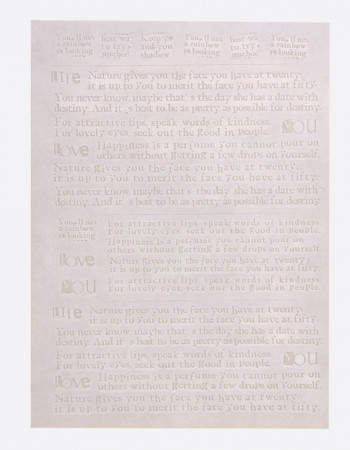 life Nature gives you the face you have at twenty
it is up to you to merit the face you have at fifty.
You never know, maybe that s the day she has a date with
destiny. And it s best to be as pretty as possible for destiny.
For attractive lips, speak words of kindness.
For lovely eyes, seek out the good in people. YOU
love Happiness is a perfume you cannot pour on
others without getting a few drops on yourself.
Nature gives you the face you have at twenty
it is up to you to merit the face you have at fifty.
You never know, maybe that s the day she has a date with
destiny. And it s best to be as pretty as possible for destiny.
a rainbow
looking
For attractive lips, speak words of kindness.
For lovely eyes, seek out the good in people.
Happiness is a perfume you cannot pour on
others without getting a few drops on yourself.
love Nature gives you the face you have at twenty
it is up to you to merit the face you have at fifty.
YOU For attractive lips, speak words of kindness.
For lovely eyes, seek out the good in people.
life Nature gives you the face you have at twenty
it is up to you to merit the face you have at fifty.
You never know, maybe that s the day she has a date with
destiny. And it s best to be as pretty as possible for destiny.
For attractive lips, speak words of kindness.
For lovely eyes, seek out the good in people. YOU
love Happiness is a perfume you cannot pour on
others without getting a few drops on yourself.
Nature gives you the face you have at twenty
it is up to you to merit the face you have at fifty.